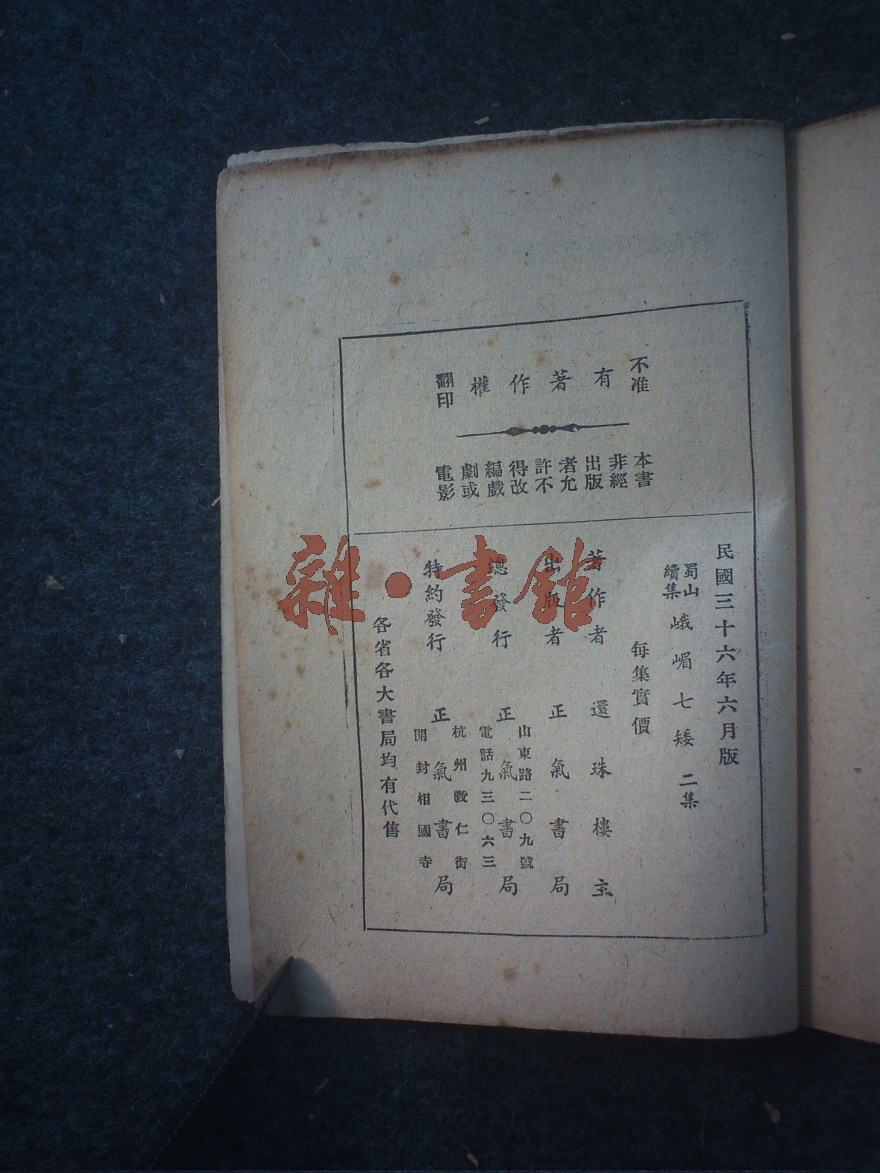 不准 有著作權 翻印
本書
非經
出版
者允
許不
得改
編戲
劇或
電影
民國三十六年六月版
蜀山
續集
峨嵋七矮 二集
每集實價
著作者 還珠樓主
出版者 正氣書局
總發行 正氣書局
山東路二〇九號
電話九三〇六三
特約發行 正氣書局
杭州敎仁街
開封相國寺
各省各大書局均有代售
雜·書館